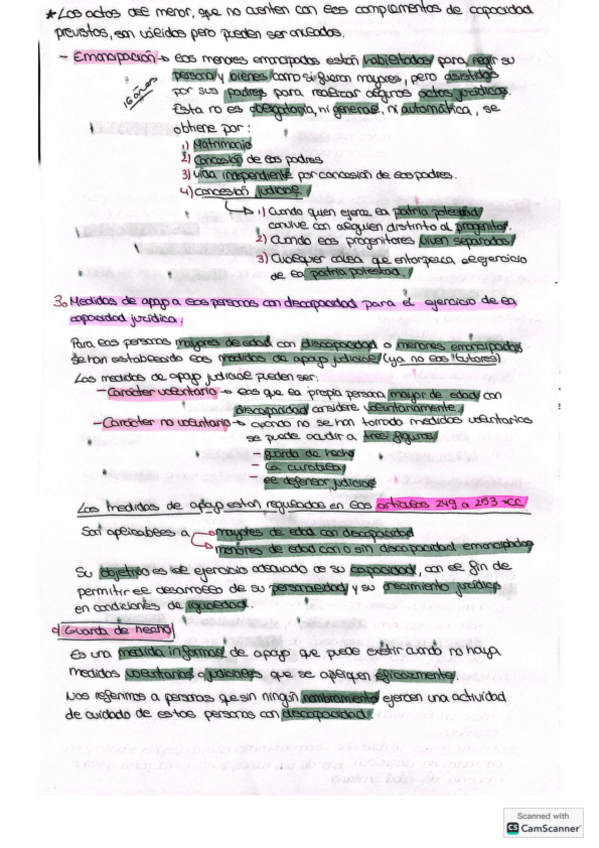 * Los actos del menor, que no cuenten con los complementos de capacidad
previstos, son válidos pero pueden ser anulados.
- Emancipación → los menores emancipados están habilitados para regir su
persona y bienes como si fueran mayores, pero asistidos
16 años
por sus padres para realizar algunos actos jurídicos.
Esta no es obligatoria, ni general, ni automática, se
obtiene por:
1) Matrimonio
2) Concesión de los padres
3) Vida independiente por concesión de los padres.
4) Concesión judicial
1) Cuando quien ejerce la patria potestad
convive con alguien distinto al progenitor.
2) Cuando los progenitores viven separados
3) Cualquier causa que entorpezca el ejercicio
de la patria potestad.
3. Medidas de apoyo a las personas con discapacidad para el ejercicio de la
capacidad jurídica.
Para las personas mayores de edad con discapacidad o menores emancipados
se han establecido las medidas de apoyo judicial (ya no los tutores)
Las medidas de apoyo judicial pueden ser:
- Carácter voluntario → las que la propia persona mayor de edad con
discapacidad considere voluntariamente.
- Carácter no voluntario → cuando no se han tomado medidas voluntarias
se puede acudir a tres figuras
- guarda de hecho
- la curatela
- el defensor judicial
Las medidas de apoyo están reguladas en los artículos 249 a 253 CC
Son aplicables a → mayores de edad con discapacidad
→ menores de edad con o sin discapacidad emancipados
Su objetivo es el ejercicio adecuado de su capacidad, con el fin de
permitir el desarrollo de su personalidad y su crecimiento jurídico
en condiciones de igualdad.
Guarda de hecho
Es una medida informal de apoyo que puede existir cuando no haya
medidas voluntarias o judiciales que se apliquen eficazmente.
Nos referimos a personas que sin ningún nombramiento ejercen una actividad
de cuidado de estas personas con discapacidad.
Scanned with
CS CamScanner